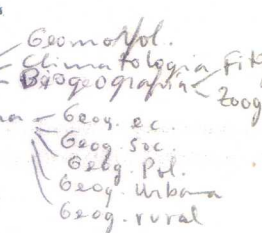 Geomorfol.
Climatologia Fit
Biogeografia Zoog
na Geog. ec.
Geog. Soc.
Geog. Pol.
Geog. Urbana
Geog. rural